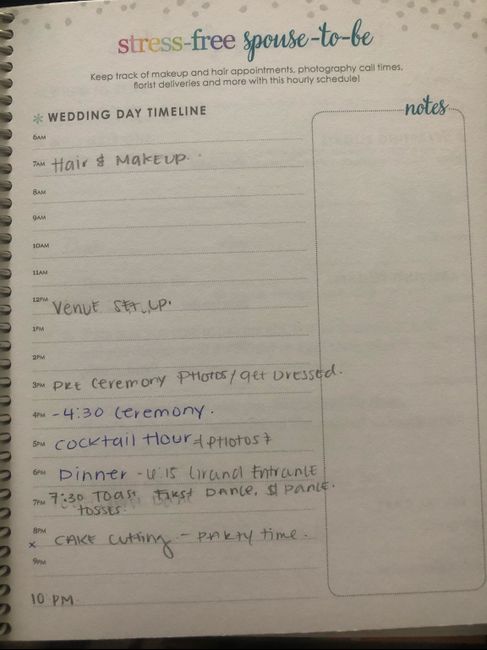 stress-free spouse-to-be
Keep track of makeup and hair appointments, photography call times,
florist deliveries and more with this hourly schedule!
* WEDDING DAY TIMELINE
notes
6AM
7AM Hair & Makeup.
8AM
9AM
10AM
11AM
12PM Venue set up.
1PM
2PM
3PM Pre ceremony photos/get dressed.
4PM -4:30 ceremony.
5PM cocktail Hour & photos
6PM Dinner - 6:15 Grand Entrance
7PM 7:30 Toast, First Dance, & Dance.
tosses.
8PM
x CAKE cutting - party time.
9PM
10 PM